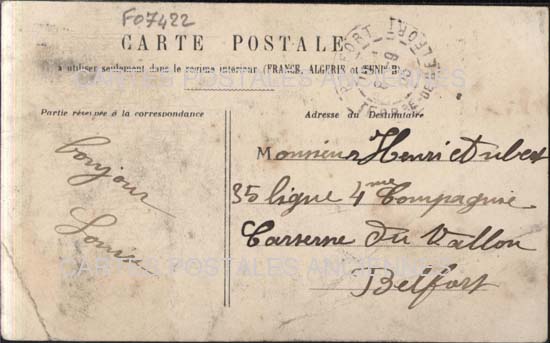 F07422
CARTE POSTALE
à utiliser seulement dans le régime intérieur (FRANCE, ALGERIE et TUNISIE)
CARTES POSTALES ANCIENNES
Partie réservée à la correspondance
Adresse du Destinataire
bonjour
Louis
Monsieur Henri Aubert
35 ligne 4me Compagnie
Carserne du Vallon
Belfort
CARTES POSTALES ANCIENNES
BELFORT